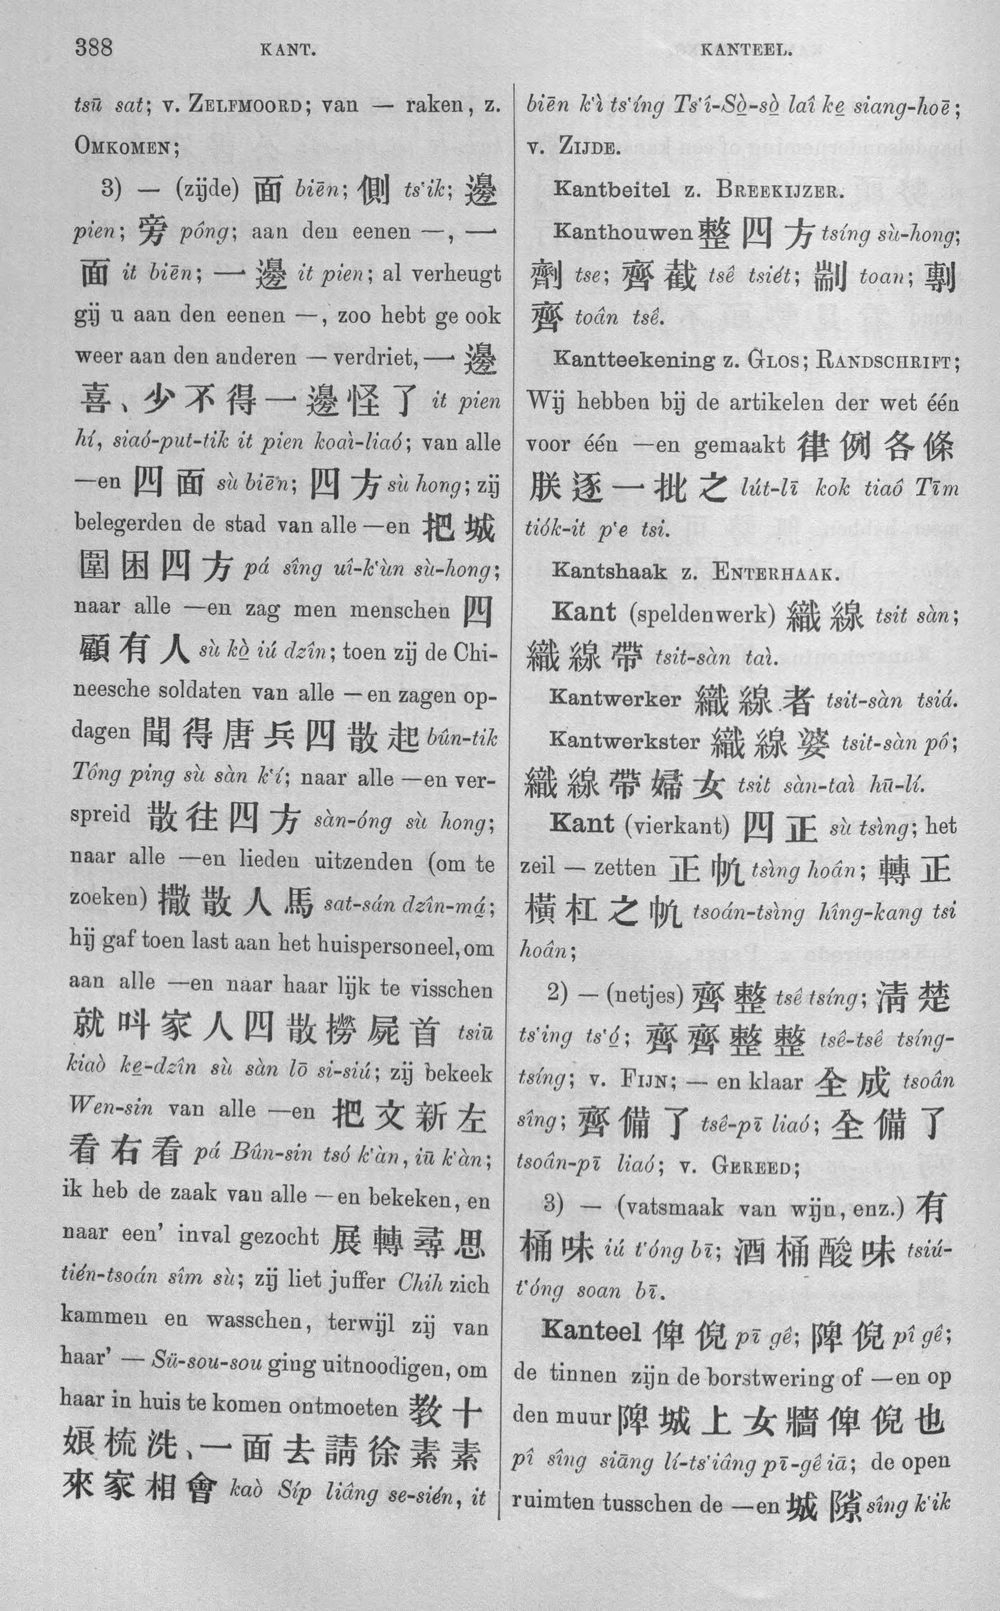 388 KANT. KANTEEL.
tsū sat; v. ZELFMOORD; van — raken, z.
OMKOMEN;
3) — (zijde) 面 biēn; 側 ts‘ik; 邊
pien; 旁 pông; aan den eenen —, 一
面 it biēn; 一 邊 it pien; al verheugt
gij u aan den eenen —, zoo hebt ge ook
weer aan den anderen — verdriet, 一 邊
喜、少 不 得 一 邊 怪 了 it pien
hí, siaó-put-tik it pien koaì-liaó; van alle
—en 四 面 sù biēn; 四 方 sù hong; zij
belegerden de stad van alle —en 把 城
圍 困 四 方 pá sîng uî-k‘ùn sù-hong;
naar alle —en zag men menschen 四
顧 有 人 sù kò̤ iú dzîn; toen zij de Chi-
neesche soldaten van alle —en zagen op-
dagen 聞 得 唐 兵 四 散 起 bûn-tik
Tông ping sù sàn k‘í; naar alle —en ver-
spreid 散 往 四 方 sàn-óng sù hong;
naar alle —en lieden uitzenden (om te
zoeken) 撒 散 人 馬 sat-sán dzîn-má̤;
hij gaf toen last aan het huispersoneel, om
aan alle —en naar haar lijk te visschen
就 叫 家 人 四 散 撈 屍 首 tsiū
kiaò ke̤-dzîn sù sàn lō si-siú; zij bekeek
Wen-sin van alle —en 把 文 新 左
看 右 看 pá Bûn-sin tsó k‘àn, iū k‘àn;
ik heb de zaak van alle —en bekeken, en
naar een’ inval gezocht 展 轉 尋 思
tién-tsoán sîm sù; zij liet juffer Chih zich
kammen en wasschen, terwijl zij van
haar’ — Sü-sou-sou ging uitnoodigen, om
haar in huis te komen ontmoeten 教 十
娘 梳 洗、一 面 去 請 徐 素 素
來 家 相 會 kaò Síp liâng se-sién, it
biēn k‘ì ts‘íng Ts‘î-Sò̤-sò̤ laî ke̤ siang-hoē;
v. ZIJDE.
Kantbeitel z. BREEKIJZER.
Kanthouwen 整 四 方 tsíng sù-hong;
劑 tse; 齊 截 tsê tsiét; 剬 toan; 剸
齊 toân tsê.
Kantteekening z. GLOS; RANDSCHRIFT;
Wij hebben bij de artikelen der wet één
voor één —en gemaakt 律 例 各 條
朕 逐 一 批 之 lút-lī kok tiaô Tīm
tiók-it p‘e tsi.
Kantshaak z. ENTERHAAK.
Kant (speldenwerk) 織 線 tsit sàn;
織 線 帶 tsit-sàn taì.
Kantwerker 織 線 者 tsit-sàn tsiá.
Kantwerkster 織 線 婆 tsit-sàn pô;
織 線 帶 婦 女 tsit sàn-taì hū-lí.
Kant (vierkant) 四 正 sù tsìng; het
zeil — zetten 正 帆 tsìng hoân; 轉 正
橫 杠 之 帆 tsoán-tsìng hîng-kang tsi
hoân;
2) — (netjes) 齊 整 tsê tsíng; 清 楚
ts‘ing ts‘ó̤; 齊 齊 整 整 tsê-tsê tsíng-
tsíng; v. FIJN; — en klaar 全 成 tsoân
sîng; 齊 備 了 tsê-pī liaó; 全 備 了
tsoân-pī liaó; v. GEREED;
3) — (vatsmaak van wijn, enz.) 有
桶 味 iú t‘óng bī; 酒 桶 酸 味 tsiú-
t‘óng soan bī.
Kanteel 俾 倪 pī gê; 陴 倪 pî gê;
de tinnen zijn de borstwering of —en op
den muur 陴 城 上 女 牆 俾 倪 也
pî sîng siāng lí-ts‘iâng pī-gê iā; de open
ruimten tusschen de —en 城 隙 sîng k‘ik